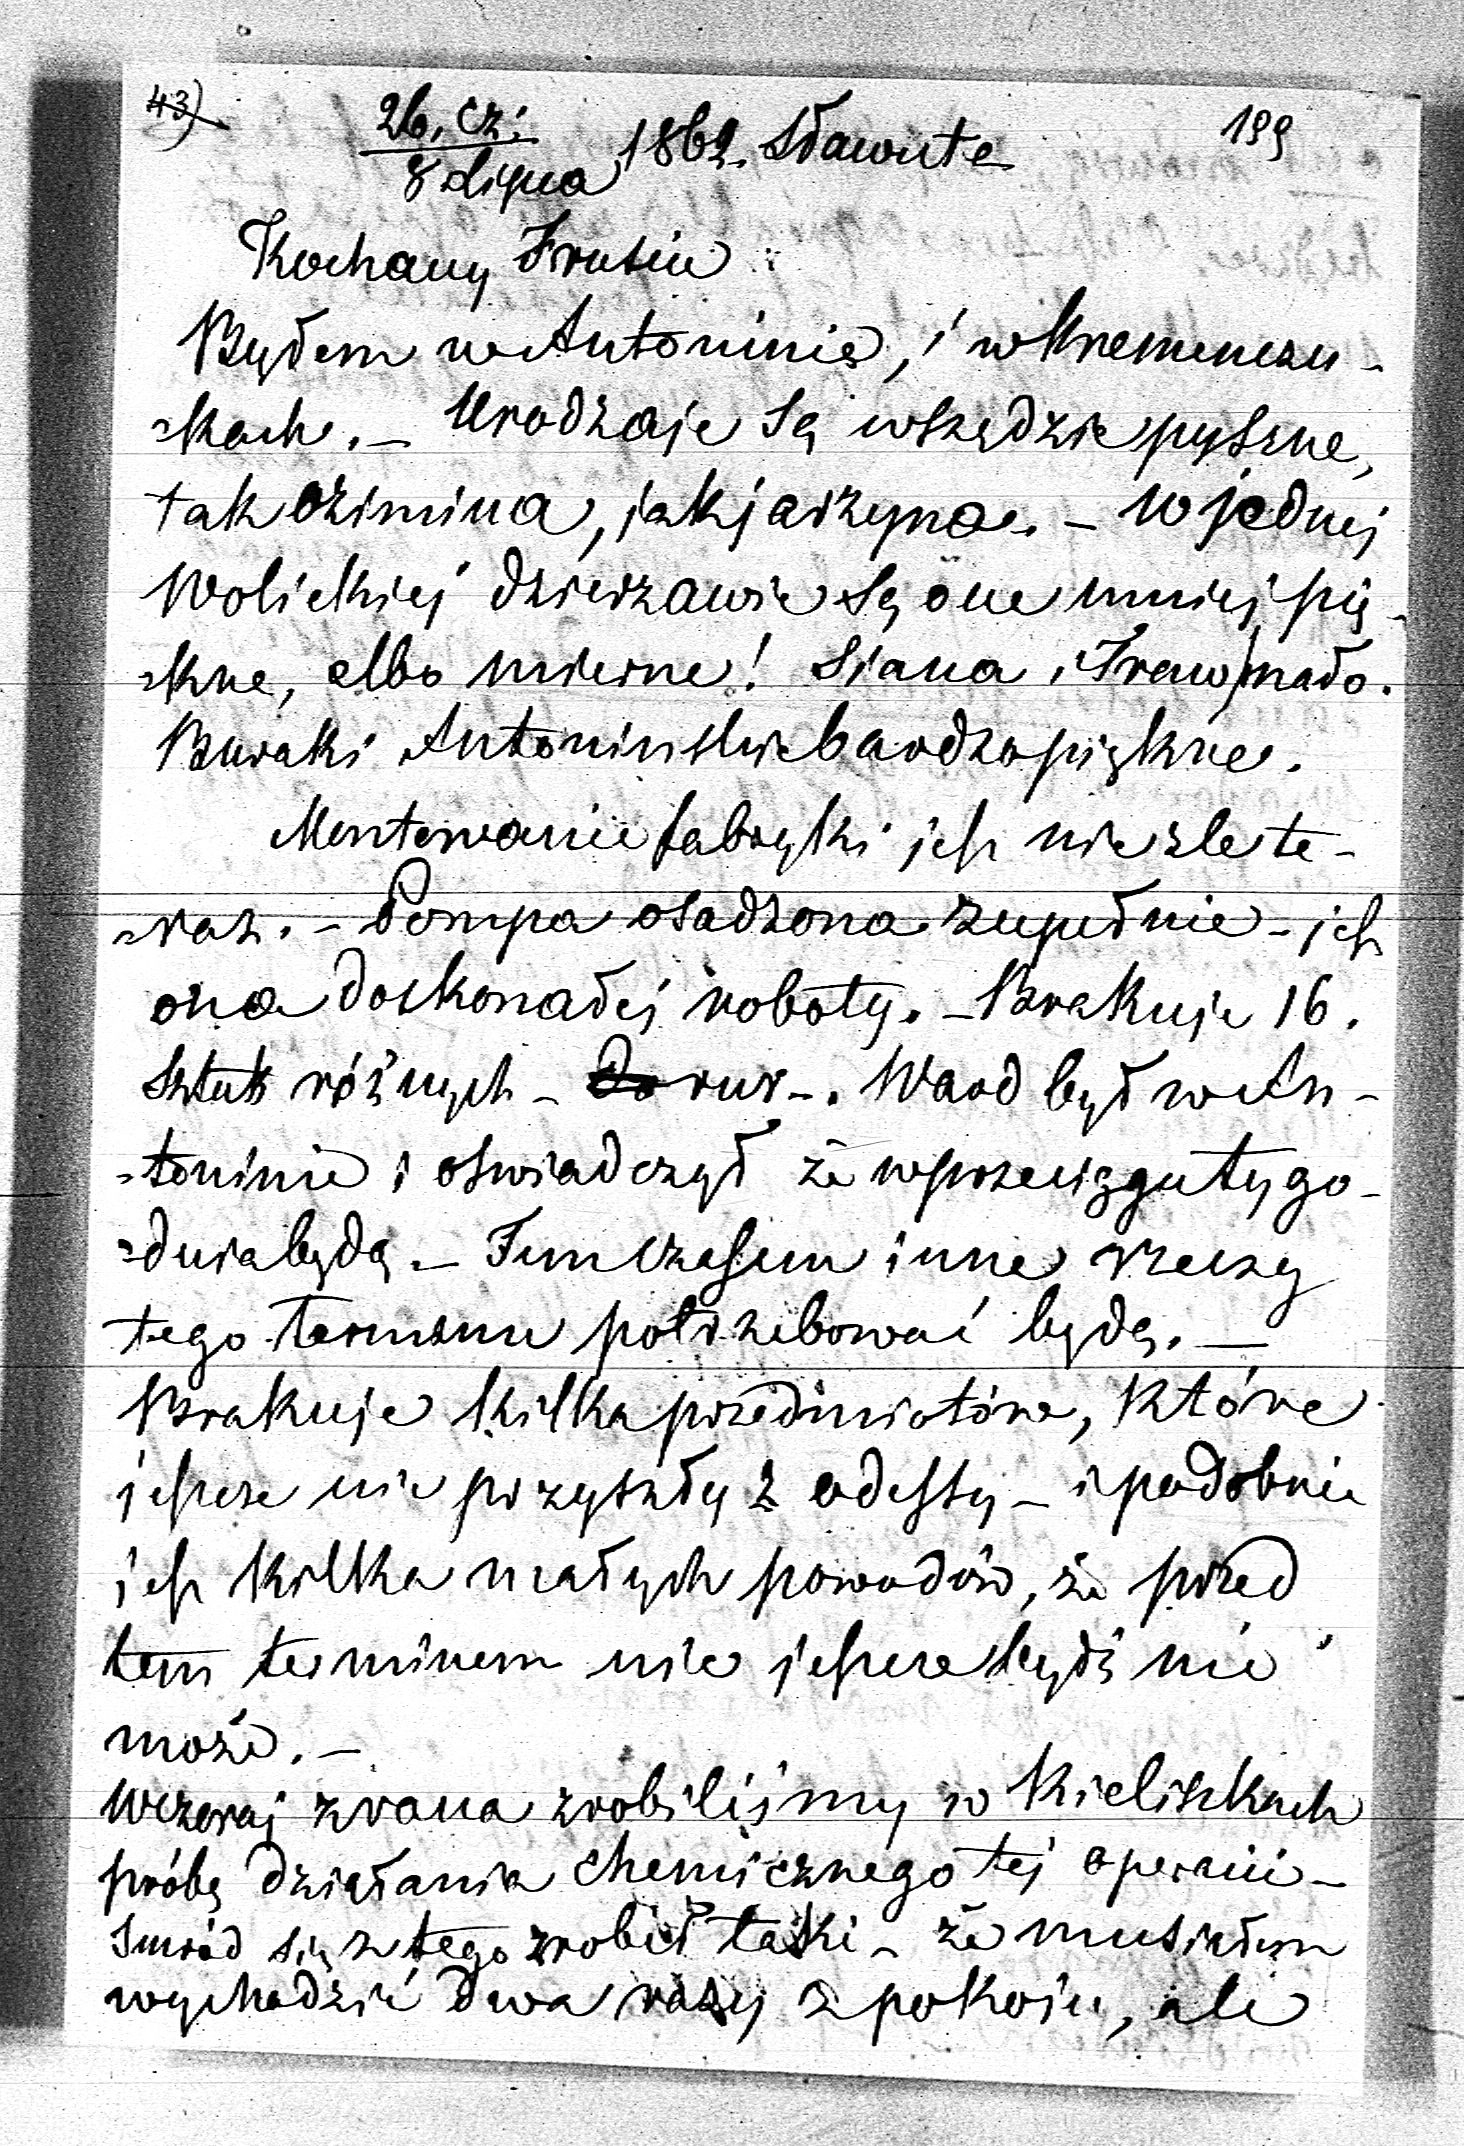 43)
199
26. cz:
8 Lipca 1862. Sławuta
Kochany Frusiu
Byłem w Antoninie, i w Kremenczu-
-kach. - Urodzaje są wszędzie pyszne,
tak ozimina, jak jarzyna. - W jednej
Wolickiej dzierzawie są one mniej pię-
-kne, albo mierne! Siana i Traw mało.
Buraki Antoninskie bardzo piękne.
Montowanie fabryki jest nieźle te-
-raz. - Pompa osadzona zupełnie - jest
ona doskonałej roboty. - Brakuje 16.
sztuk różnych - rur -. Ward był w An-
-toninie i oswiadczył że w przeciągu tygo-
-dnia będą. - Timczasem inne rzeczy
tego terminu potrzebować będą. -
Brakuje kilka przedmiotów, które
jeszcze nie przyszły z Odessy - i podobnie
jest kilka małych powodów, że przed
tem terminem nie jeszcze bydź nie
może. -
Wczoraj zrana zrobiliśmy w Kieliszkach
próbę działania chemicznego tej operacii -
Smród się z tego zrobił taki - że musiałem
wychodzić dwa razy z pokoiu, ale